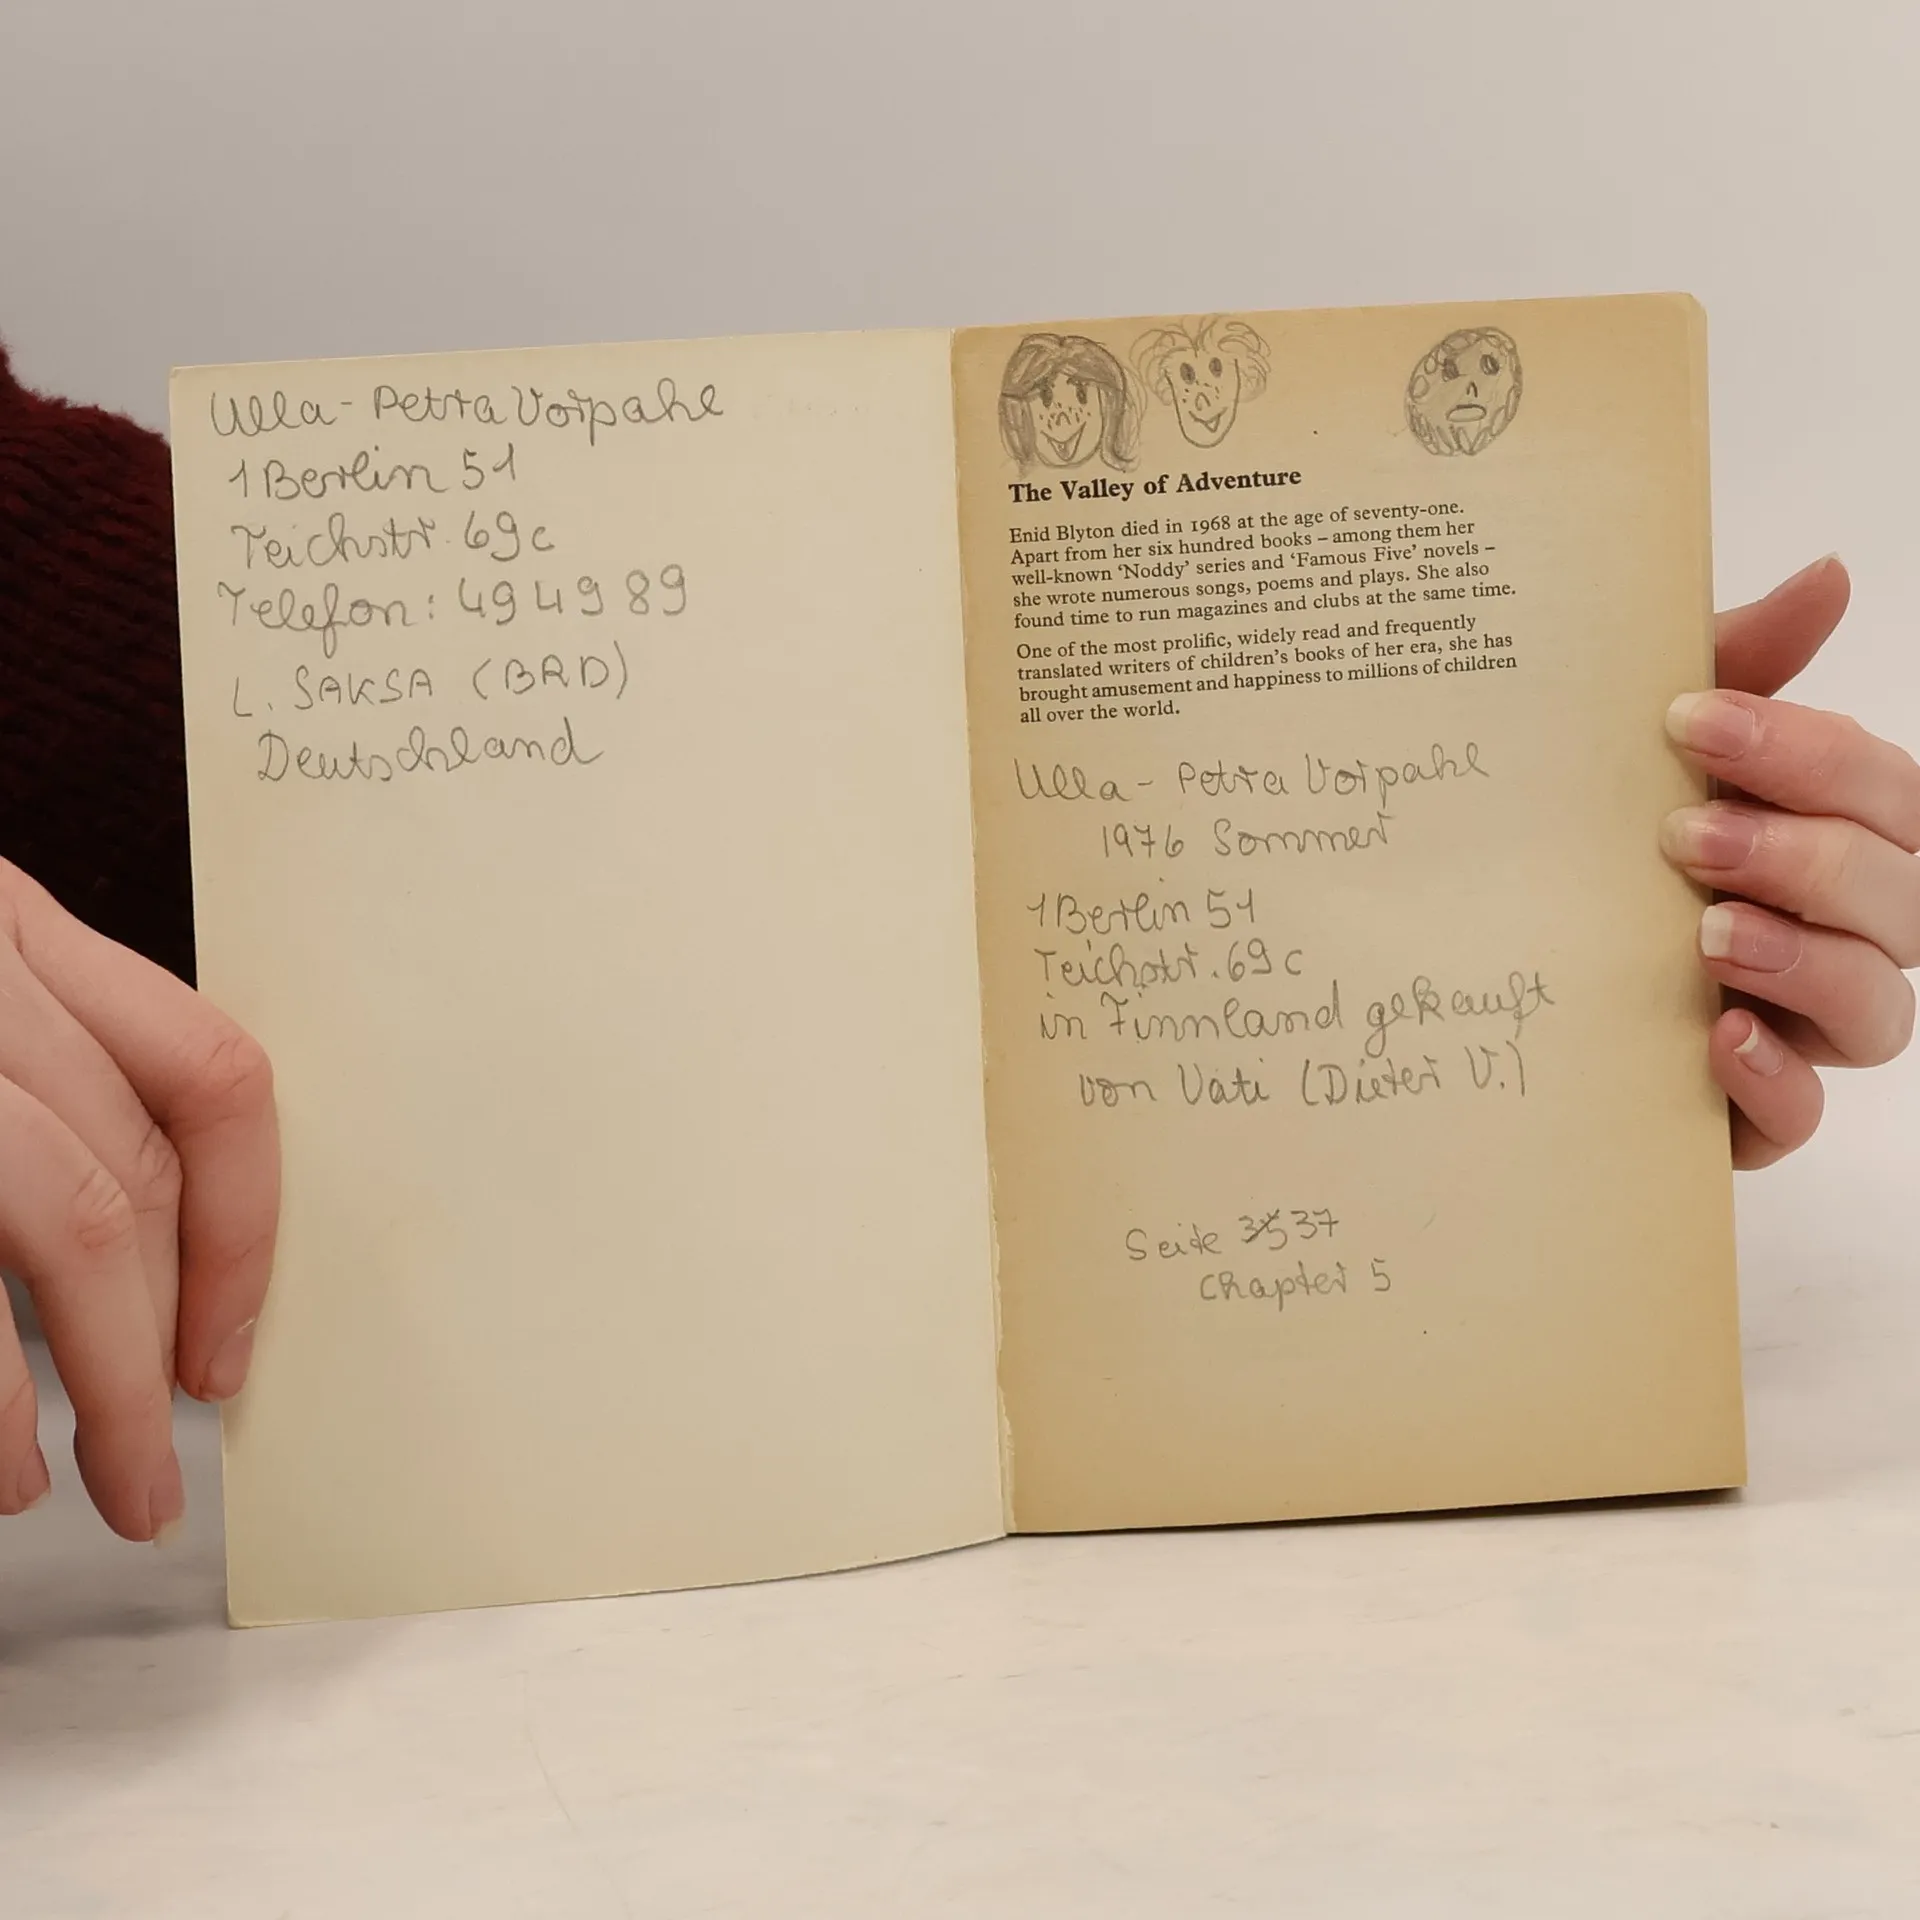 Ulla-Petra Vorpahl
1 Berlin 51
Teichstr. 69c
Telefon: 494989
L. SAKSA (BRD)
Deutschland
The Valley of Adventure
Enid Blyton died in 1968 at the age of seventy-one.
Apart from her six hundred books – among them her
well-known ‘Noddy’ series and ‘Famous Five’ novels –
she wrote numerous songs, poems and plays. She also
found time to run magazines and clubs at the same time.
One of the most prolific, widely read and frequently
translated writers of children's books of her era, she has
brought amusement and happiness to millions of children
all over the world.
Ulla-Petra Vorpahl
1976 Sommer
1 Berlin 51
Teichstr. 69c
in Finnland gekauft
von Vati (Dieter V.)
Seite 35 37
Chapter 5